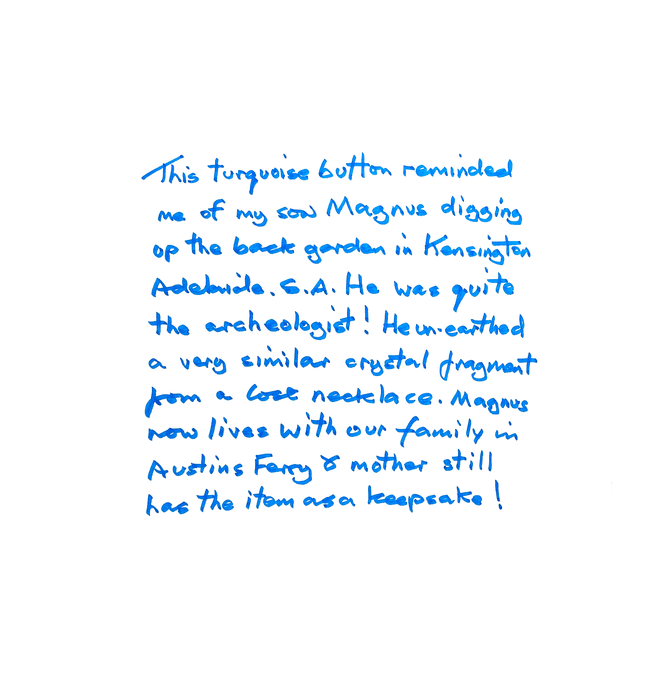 This turquoise button reminded
me of my son Magnus digging
up the back garden in Kensington
Adelaide. S.A. He was quite
the archeologist! He un-earthed
a very similar crystal fragment
from a lost necklace. Magnus
now lives with our family in
Austins Ferry & mother still
has the item as a keepsake!